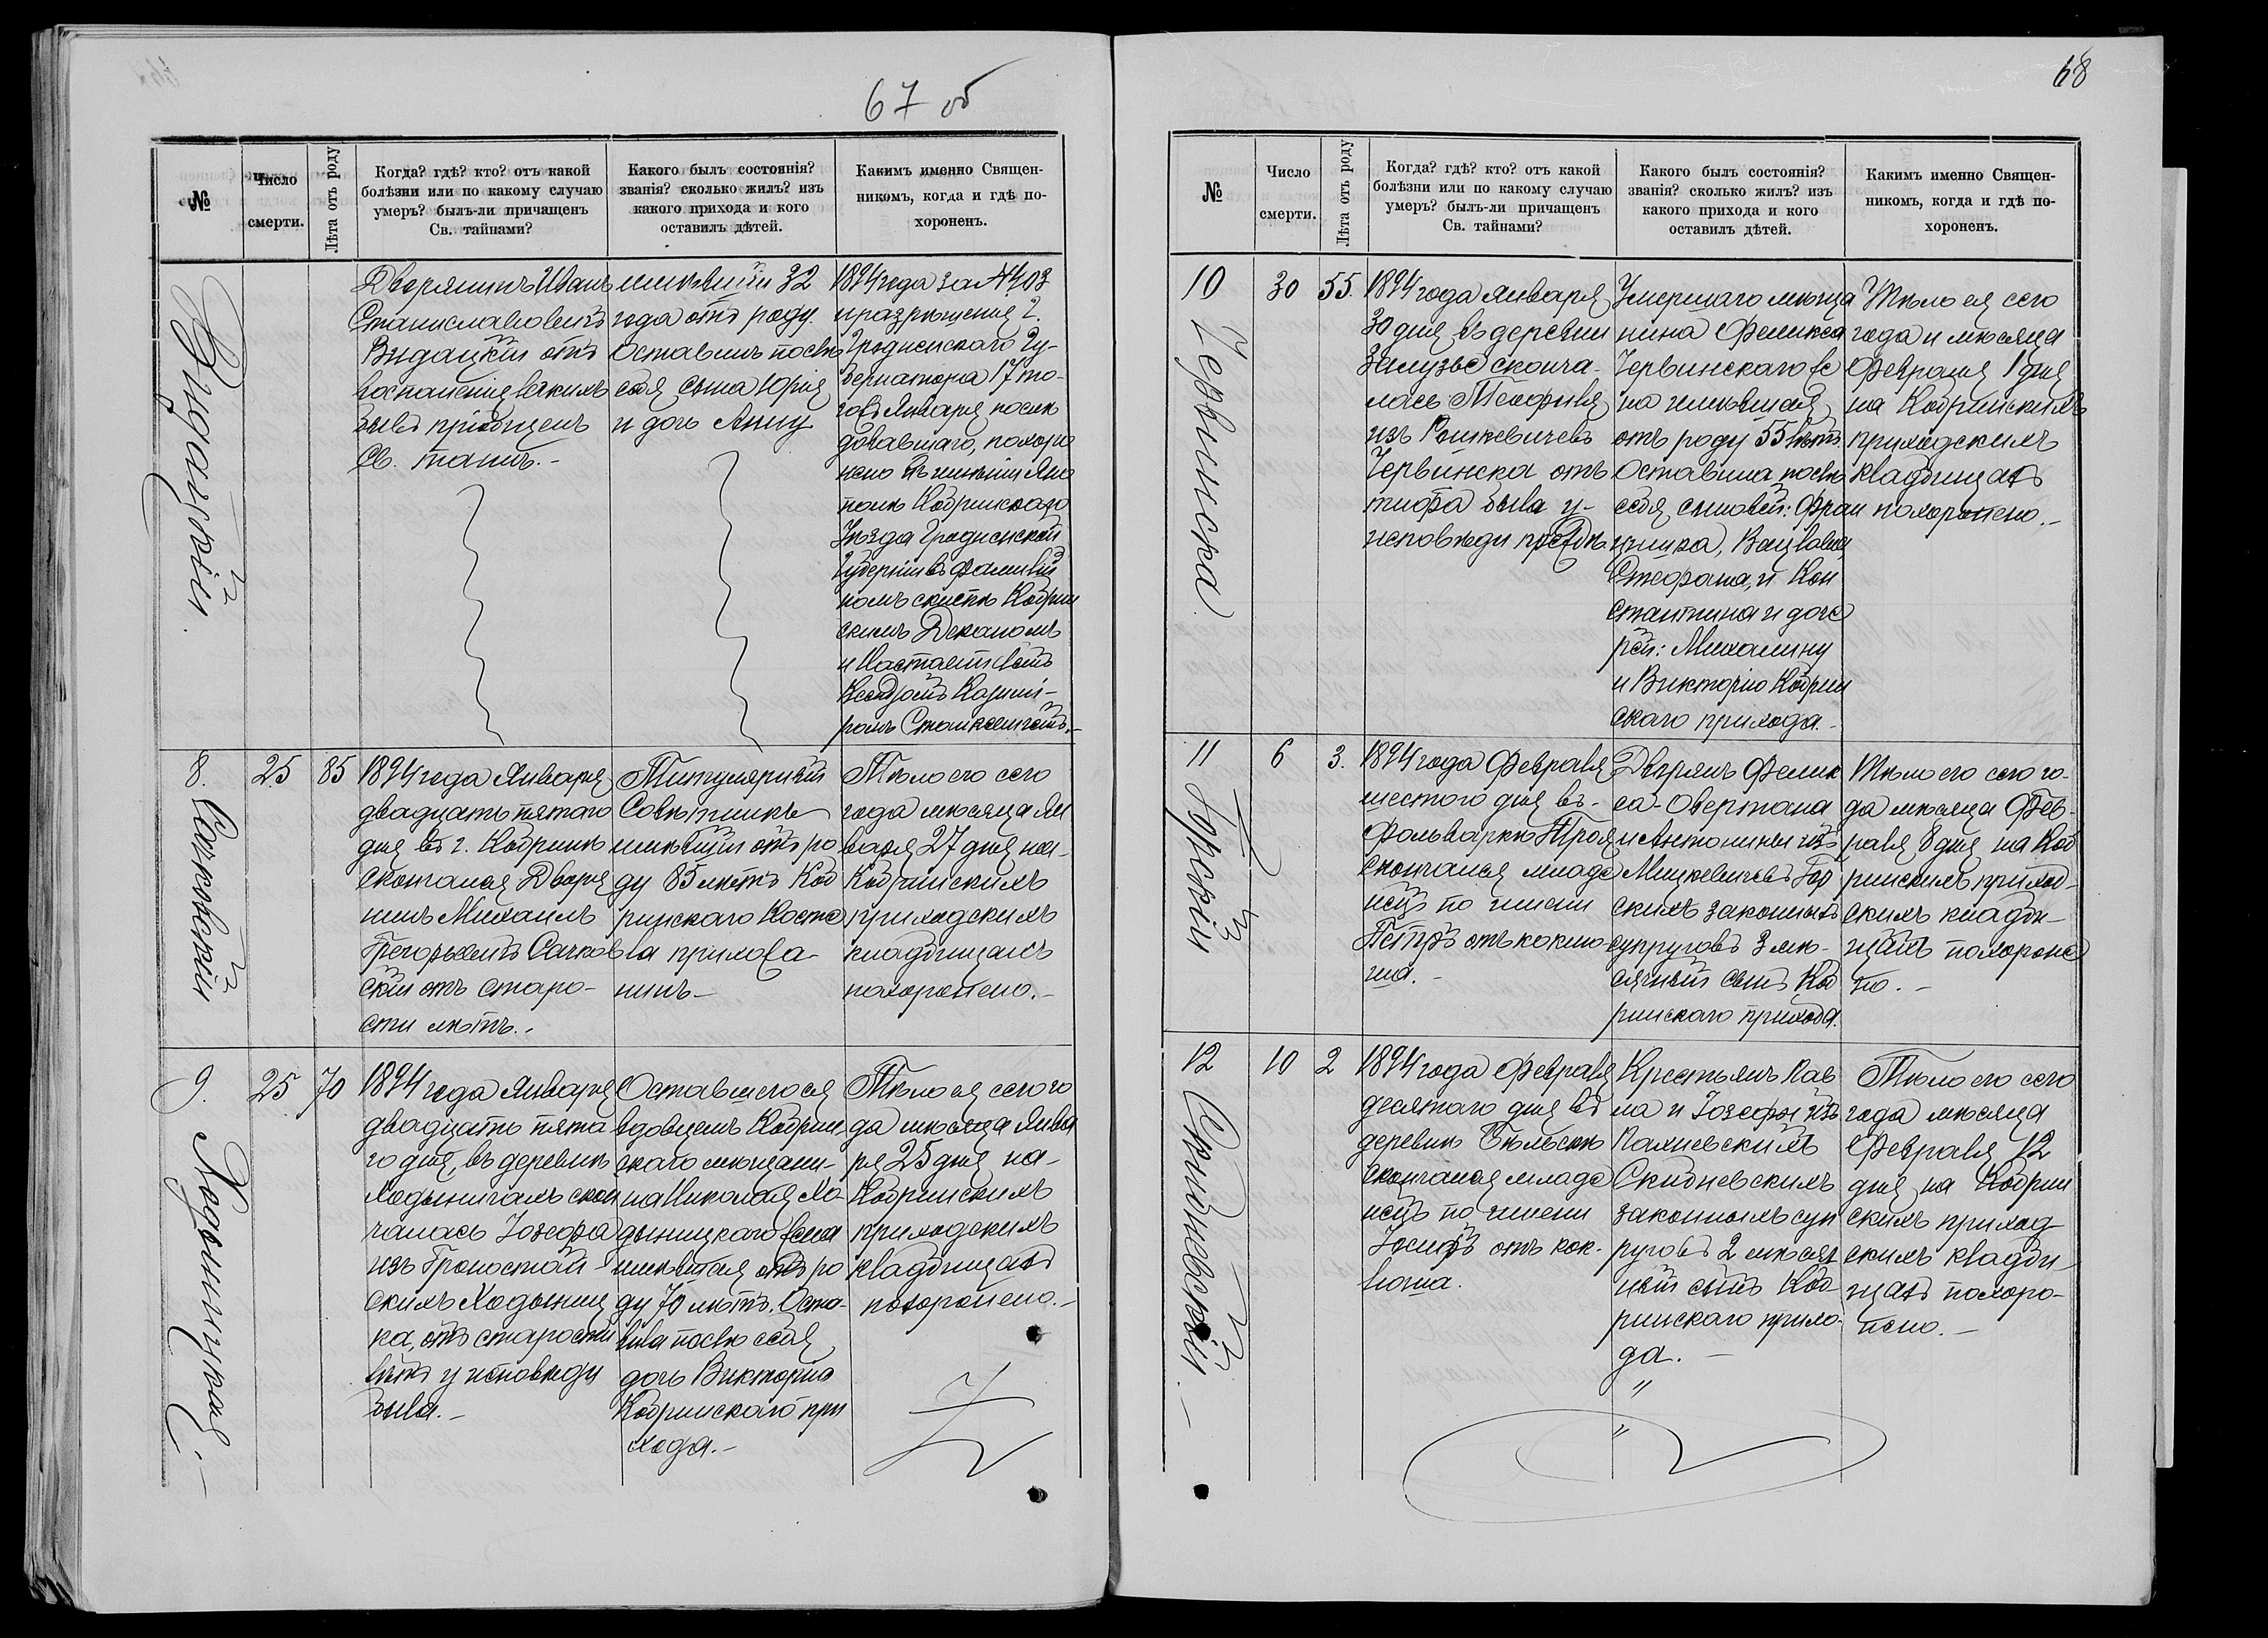 67 об
№
Число
смерти.
Лѣта отъ роду
Когда? гдѣ? кто? отъ какой
болѣзни или по какому случаю
умеръ? былъ-ли причащенъ
Св. тайнами?
Какого былъ состоянія?
званія? сколько жилъ? изъ
какого прихода и кого
оставилъ дѣтей.
Какимъ именно Священ-
никомъ, когда и гдѣ по-
хороненъ.
Дворянинъ Иванъ
Станиславовичъ
отъ
былъ пріобщенъ
Св. таинъ.-
имѣвшій 32
года отъ роду.
Оставилъ послѣ
себя сына Юрія
и дочь Анну
1894 года за №403
и разрѣшенія г.
Гродненскаго Гу-
бернатора 17 то-
говъ Января послѣ
довавшаго, похоро
нено въ имѣніи
Кобринскаго
Уѣзда Гродненской
Губерніи въ фамиль
номъ склепѣ Кобрин
скимъ Деканомъ
и Настоятелемъ
Ксендзомъ Казимі-
ромъ
8.
25
85
1894 года Января
двадцать пятаго
дня въ г. Кобринѣ
скончался Дворя
нинъ Михаилъ
отъ старо-
сти лѣтъ.-
Титулярный
Совѣтникъ
имѣвшій отъ ро
ду 85 лѣтъ Коб
ринскаго Косте
ла прихожа-
нинъ-
Тѣло его сего
года мѣсяца Ян
варя 27 дня на-
Кобринскимъ
приходскимъ
кладбищахъ
похоронено.-
9.
Ходыницкая.-
25
70
1894 года Января
двадцать пята
го дня, въ деревнѣ
Ходыничахъ скон
чалась Іозефа
изъ Громостай-
скихъ Ходыниц
ка, отъ старости
лѣтъ у исповѣди
была.-
Оставшегося
вдовцемъ Кобрин
скаго мѣщани-
на Николая Хо-
дыницкаго жена
имѣвшая отъ ро
ду 70 лѣтъ. Оста-
вила послѣ себя
дочь Викторію
Кобринскаго при
хода.-
Тѣло ея сего го
да мѣсяца Янва
ря 25 дня на-
Кобринскимъ
приходскимъ
кладбищахъ
похоронено.-
68
№
Число
смерти.
Лѣта отъ роду
Когда? гдѣ? кто? отъ какой
болѣзни или по какому случаю
умеръ? былъ-ли причащенъ
Св. тайнами?
Какого былъ состоянія?
званія? сколько жилъ? изъ
какого прихода и кого
оставилъ дѣтей.
Какимъ именно Священ-
никомъ, когда и гдѣ по-
хороненъ.
10
Червинска
30
55.
1894 года Января
30 дня, въ деревни
Залузье сконча-
лась Теофиля
изъ Рошкевичевъ
Червинска отъ
тифа была у-
исповѣди предъ
Умершаго мѣща
нина Феликса
Червинскаго же
на имѣвшая
отъ роду 55 лѣтъ.
Оставила послѣ
себя, сыновей: Фран
цишка, Вацлава,
Стефана, и Кон
стантина и доче
рей: Михалину
и Викторію Кобрин
скаго прихода.-
Тѣло ея сего
года и мѣсяца
Февраля 1 дня
на Кобринскимъ
приходскимъ
кладбищахъ
похоронено.-
11
Горскій
6
3.
1894 года Февраля
шестого дня въ-
фольваркѣ
скончался младе
нецъ по имени
Петръ отъ коклю-
ша.-
Дворянъ Фелик
са-
и Антонины изъ
Мицкевичевъ Гор
скихъ законныхъ
супруговъ 3 мѣ-
сячный сынъ Коб
ринскаго прихода.
Тѣло его сего го-
да мѣсяца Фев-
раля, 8 дня на Коб
ринскимъ приход-
скимъ кладби-
щахъ похороне
но.-
12
Скидневскій.-
10
2
1894 года Февраля
десятаго дня въ
деревнѣ
скончался младе
нецъ по имени
Іосифъ отъ кок-
люша.
Крестьянъ Пав
ла и Іозефы изъ
Скидневскихъ
законныхъ суп
руговъ 2 мѣсяч
ный сынъ Коб-
ринскаго прихо-
да.-
"
"
Тѣло его сего
года мѣсяца
Февраля 12
дня на Кобрин
скимъ приход
скимъ кладби-
щахъ похоро-
нено.-